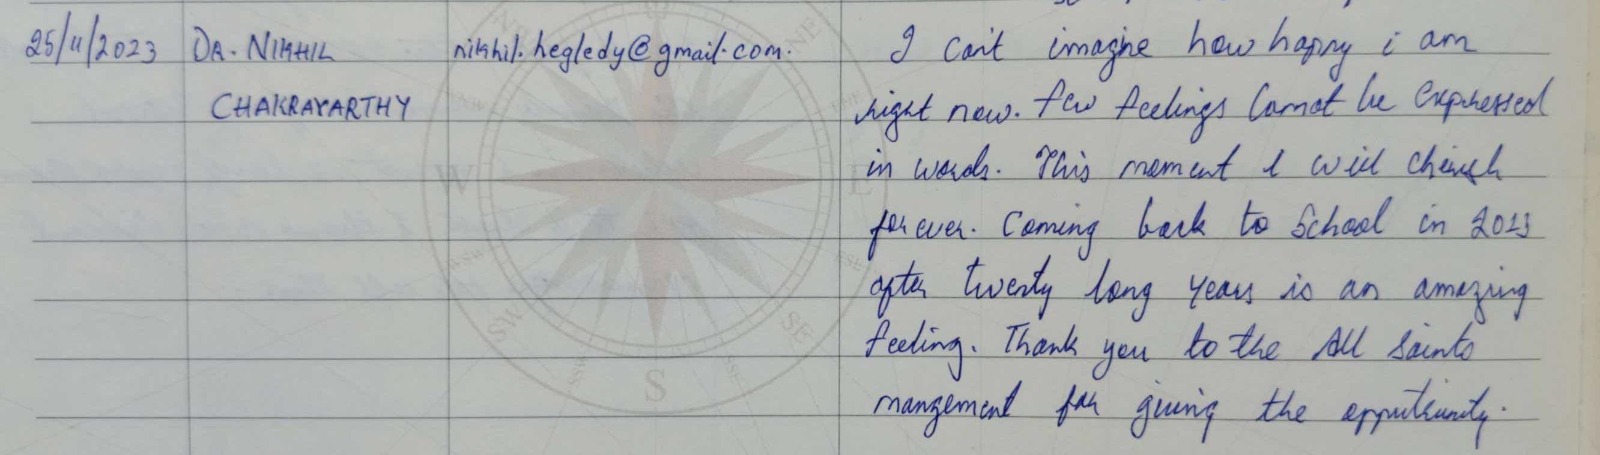 25/11/2023 DR. NIKHIL nikhil.hegledy@gmail.com. I can't imagine how happy i am
CHAKRAVARTHY right now. Few feelings Cannot be expressed
in words. This moment I will cherish
forever. Coming back to School in 2023
after twenty long years is an amazing
feeling. Thank you to the All Saints
mangement for giving the opputiunity.
W
E
NE
ESE
SE
SSE
S
SSW
SW
WSW